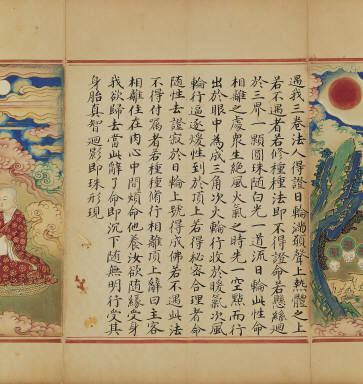 遇我三卷法人得證日輪湍頻聲上熱體之上
若不遇者若修種種法即不得證命若懸絲迴
於三界一顆圓珠随白光一道流日輪此性命
相離之處衆生絶風火氣之時先一空點而行
出於眼中為成三角次火輪行收於暖氣次風
輪行逼逐煖性到於頂上若得秘密合理者命
随性去證寂於日輪上號得成佛若不遇此法
不得付属者若種種脩行相離頂上辭曰主客
相離住在肉心中間煩命他養汝欲随緣受身
我欲歸去當此辭了命即沉下随無明行受其
身胎真智迴影即珠形現